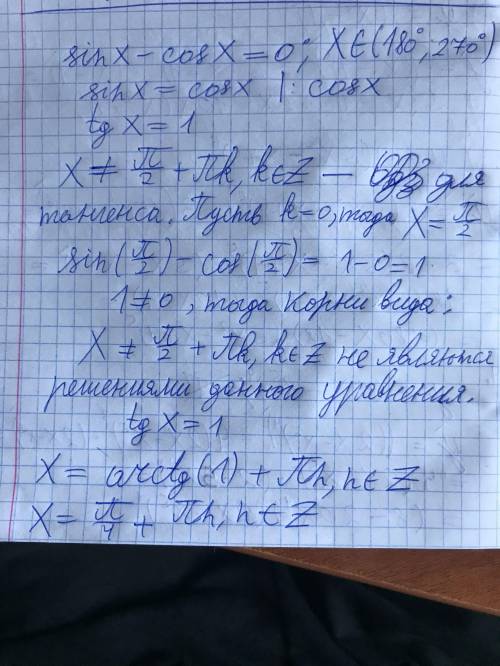 sinx - cosx = 0; X∈(180°, 270°)
sinx = cosx |: cosx
tg x = 1
X ≠ π/2 + πk, k∈Z — для
тангенса. Пусть k=0, тогда X = π/2
sin(π/2) - cos(π/2) = 1-0=1
1≠0, тогда корни вида:
X ≠ π/2 + πk, k∈Z не являются
решениями данного уравнения.
tg x = 1
X = arctg(1) + πn, n∈Z
X = π/4 + πn, n∈Z